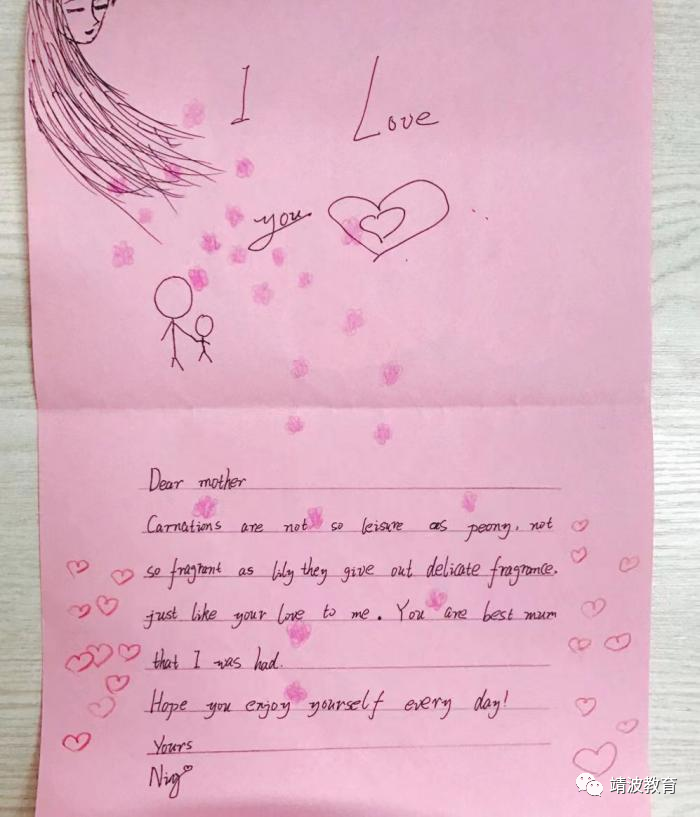 I Love
you
Dear mother
Carnations are not so leisure as peony, not
so fragrant as lily they give out delicate fragrance.
just like your love to me. You are best mum
that I was had.
Hope you enjoy yourself every day!
Yours
靖波教育